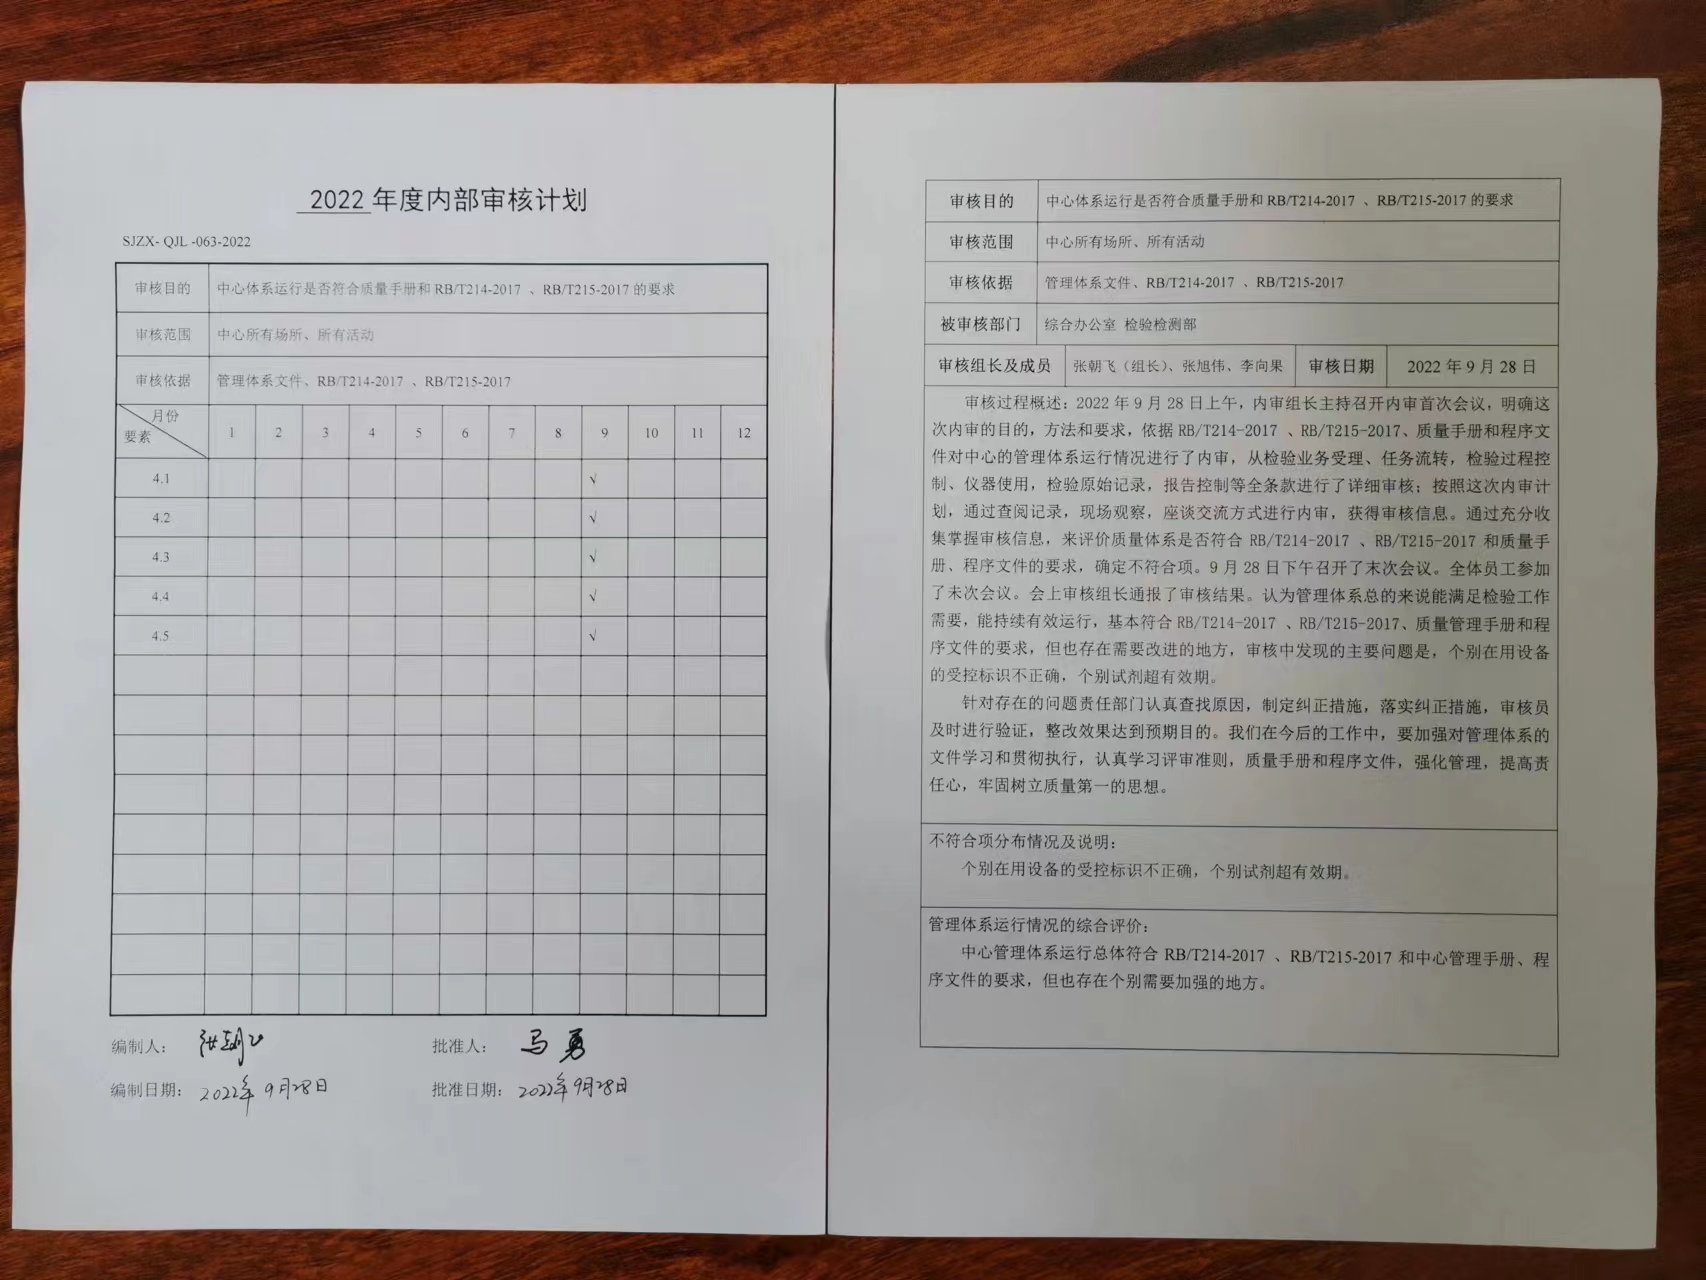 2022 年度内部审核计划
SJZX- QJL -063-2022
审核目的 中心体系运行是否符合质量手册和 RB/T214-2017 、RB/T215-2017 的要求
审核范围 中心所有场所、所有活动
审核依据 管理体系文件、RB/T214-2017 、RB/T215-2017
月份
要素 1 2 3 4 5 6 7 8 9 10 11 12
4.1 √
4.2 √
4.3 √
4.4 √
4.5 √
编制人： 张朝飞 批准人： 马勇
编制日期： 2022年9月28日 批准日期： 2022年9月28日
审核目的 中心体系运行是否符合质量手册和 RB/T214-2017 、RB/T215-2017 的要求
审核范围 中心所有场所、所有活动
审核依据 管理体系文件、RB/T214-2017 、RB/T215-2017
被审核部门 综合办公室 检验检测部
审核组长及成员 张朝飞（组长）、张旭伟、李向果 审核日期 2022 年 9 月 28 日
审核过程概述：2022 年 9 月 28 日上午，内审组长主持召开内审首次会议，明确这
次内审的目的，方法和要求，依据 RB/T214-2017 、RB/T215-2017、质量手册和程序文
件对中心的管理体系运行情况进行了内审，从检验业务受理、任务流转，检验过程控
制、仪器使用，检验原始记录，报告控制等全条款进行了详细审核；按照这次内审计
划，通过查阅记录，现场观察，座谈交流方式进行内审，获得审核信息。通过充分收
集掌握审核信息，来评价质量体系是否符合 RB/T214-2017 、RB/T215-2017 和质量手
册、程序文件的要求，确定不符合项。9 月 28 日下午召开了末次会议。全体员工参加
了末次会议。会上审核组长通报了审核结果。认为管理体系总的来说能满足检验工作
需要，能持续有效运行，基本符合 RB/T214-2017 、RB/T215-2017、质量管理手册和程
序文件的要求，但也存在需要改进的地方，审核中发现的主要问题是，个别在用设备
的受控标识不正确，个别试剂超有效期。
针对存在的问题责任部门认真查找原因，制定纠正措施，落实纠正措施，审核员
及时进行验证，整改效果达到预期目的。我们在今后的工作中，要加强对管理体系的
文件学习和贯彻执行，认真学习评审准则，质量手册和程序文件，强化管理，提高责
任心，牢固树立质量第一的思想。
不符合项分布情况及说明：
个别在用设备的受控标识不正确，个别试剂超有效期。
管理体系运行情况的综合评价：
中心管理体系运行总体符合 RB/T214-2017 、RB/T215-2017 和中心管理手册、程
序文件的要求，但也存在个别需要加强的地方。